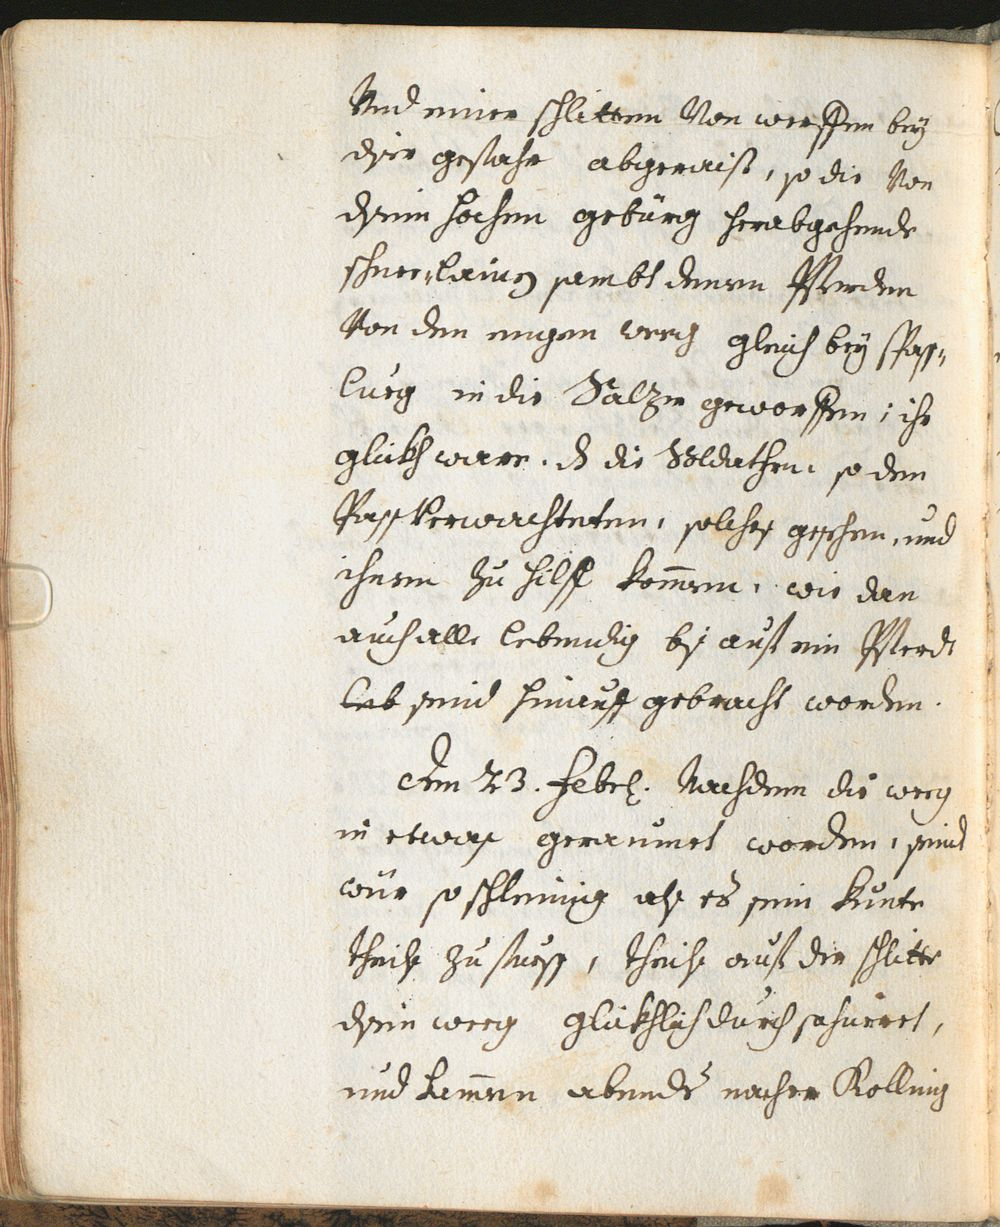 Und einer schlitten Von werffen bey
diser gefahr abgeraist, so die Von
disem hochen gebürg herabgehende
schnee-lainen sambt denen Pferden
Von den engen weeg gleich bey Pass
lueg in die Salza geworffen; ihr
glükh ware. d die Soldathen, so den
Pass Verwachteten, solches gesehen, und
ihnen zu hilff kommen, wie dan
auch alle lebendig bis auf ein Pferdt
seind hinauff gebracht worden.
Den 23. Febr. Nachdem die weeg
in etwas geraumet worden, seind
wür so schleinig als es sein kunte
theils zu fuess, theils auf der schlitte
disen weeg glükhlich durch passieret,
und kommen abends nacher Kolling